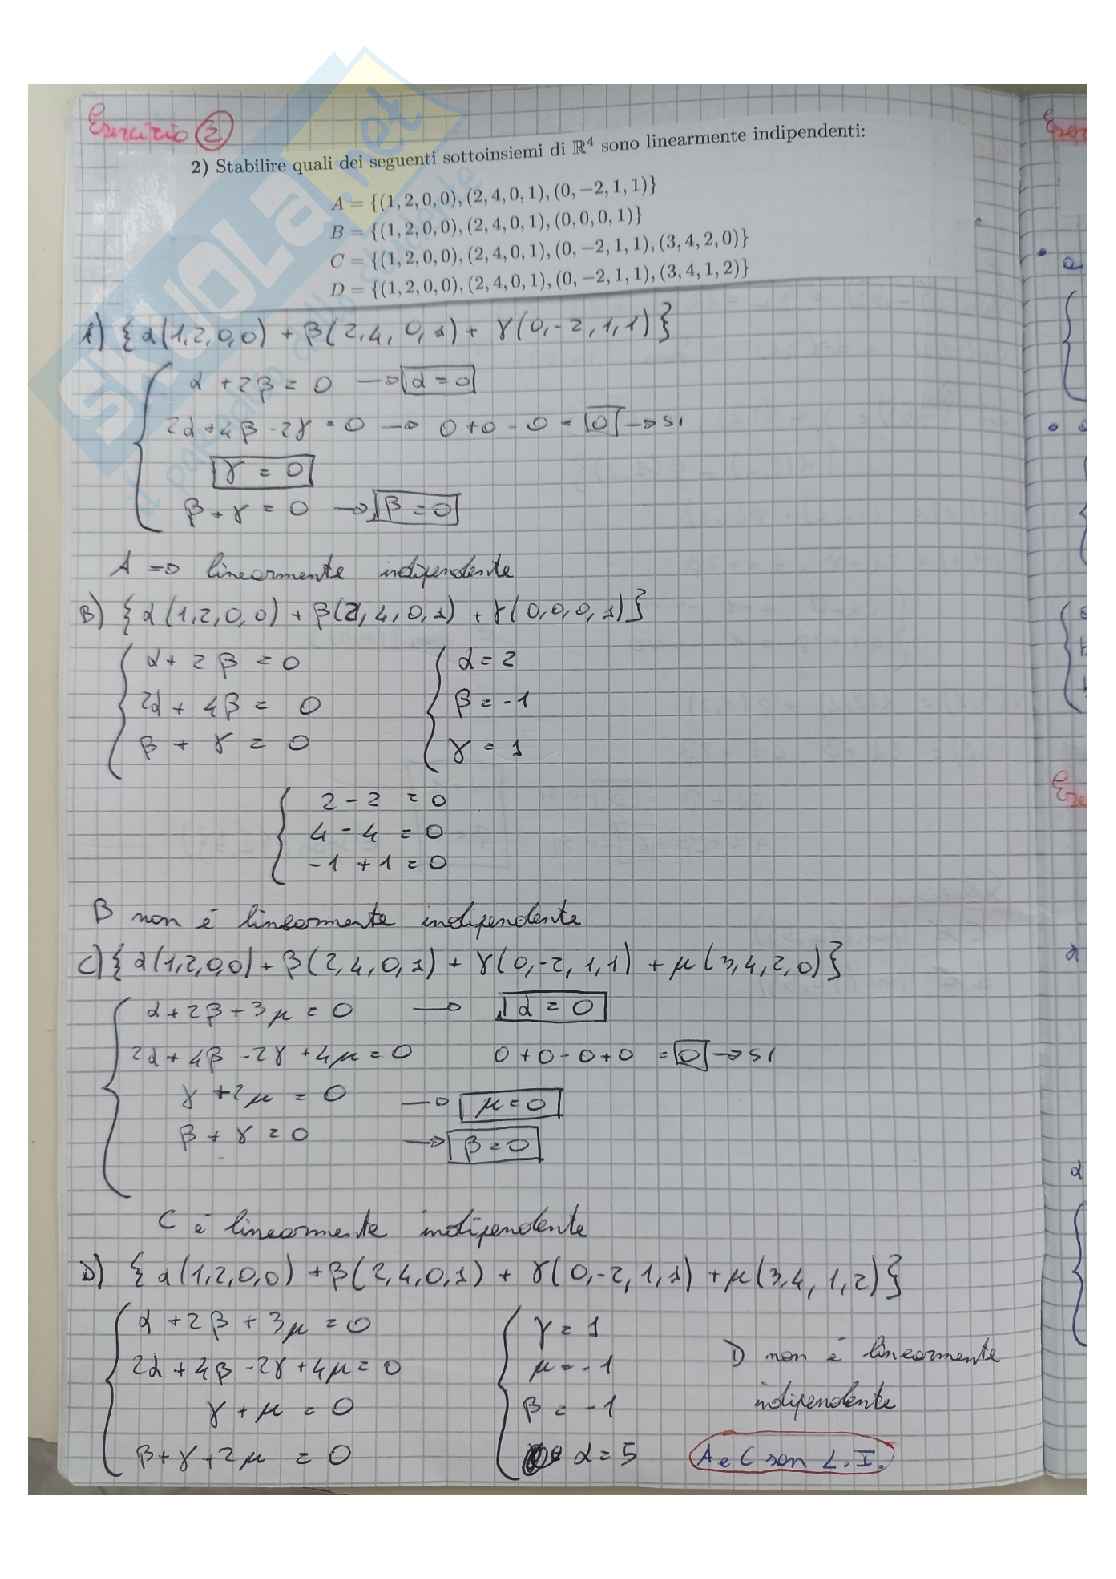 Esercizio 2
2) Stabilire quali dei seguenti sottoinsiemi di ℝ⁴ sono linearmente indipendenti:
A = {(1, 2, 0, 0), (2, 4, 0, 1), (0, −2, 1, 1)}
B = {(1, 2, 0, 0), (2, 4, 0, 1), (0, 0, 0, 1)}
C = {(1, 2, 0, 0), (2, 4, 0, 1), (0, −2, 1, 1), (3, 4, 2, 0)}
D = {(1, 2, 0, 0), (2, 4, 0, 1), (0, −2, 1, 1), (3, 4, 1, 2)}
A) {α(1,2,0,0) + β(2,4,0,1) + γ(0,-2,1,1)}
α + 2β = 0 → α = 0
2α + 4β - 2γ = 0 → 0+0-0 = 0 → sì
γ = 0
β + γ = 0 → β = 0
A ⇒ linearmente indipendente
B) {α(1,2,0,0) + β(2,4,0,1) + γ(0,0,0,1)}
α + 2β = 0 α = 2
2α + 4β = 0 β = -1
β + γ = 0 γ = 1
2 - 2 = 0
4 - 4 = 0
-1 + 1 = 0
B non è linearmente indipendente
C) {α(1,2,0,0) + β(2,4,0,1) + γ(0,-2,1,1) + μ(3,4,2,0)}
α + 2β + 3μ = 0 → α = 0
2α + 4β - 2γ + 4μ = 0 0+0-0+0 = 0 → sì
γ + 2μ = 0 → μ = 0
β + γ = 0 → β = 0
C è linearmente indipendente
D) {α(1,2,0,0) + β(2,4,0,1) + γ(0,-2,1,1) + μ(3,4,1,2)}
α + 2β + 3μ = 0 γ = 1
2α + 4β - 2γ + 4μ = 0 μ = -1 D non è linearmente
γ + μ = 0 β = -1 indipendente
β + γ + 2μ = 0 α = 5 A e C son L.I.
SKUOLA.net